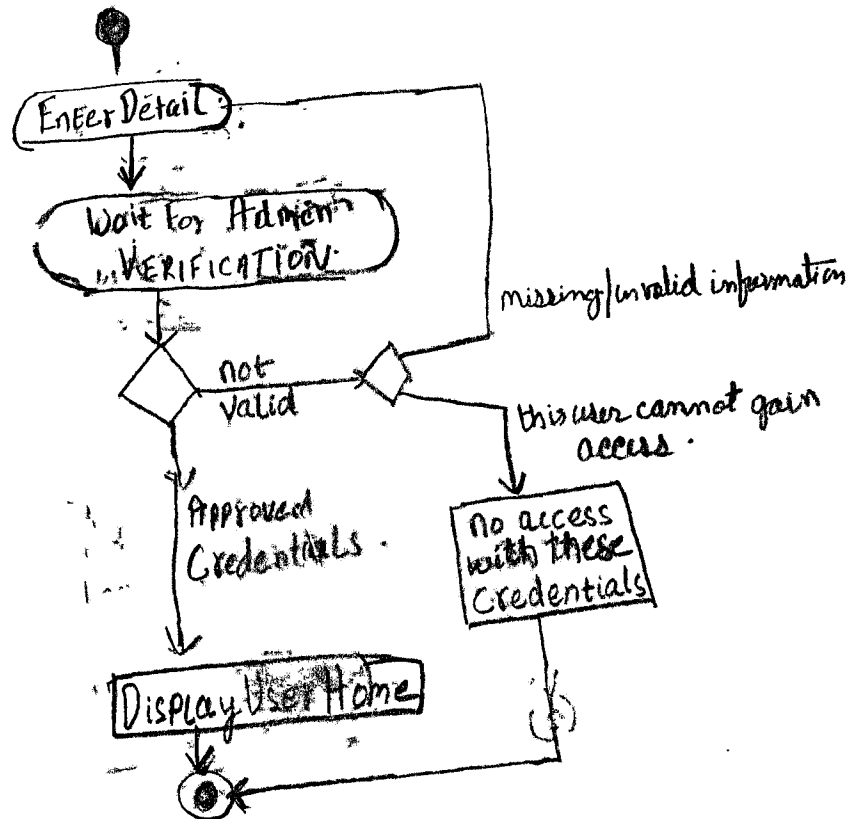 Enter Detail
Wait For Admien
VERIFICATION.
missing/invalid information
not
valid
this user cannot gain
access.
Approved
Credentials.
no access
with these
Credentials
Display User Home